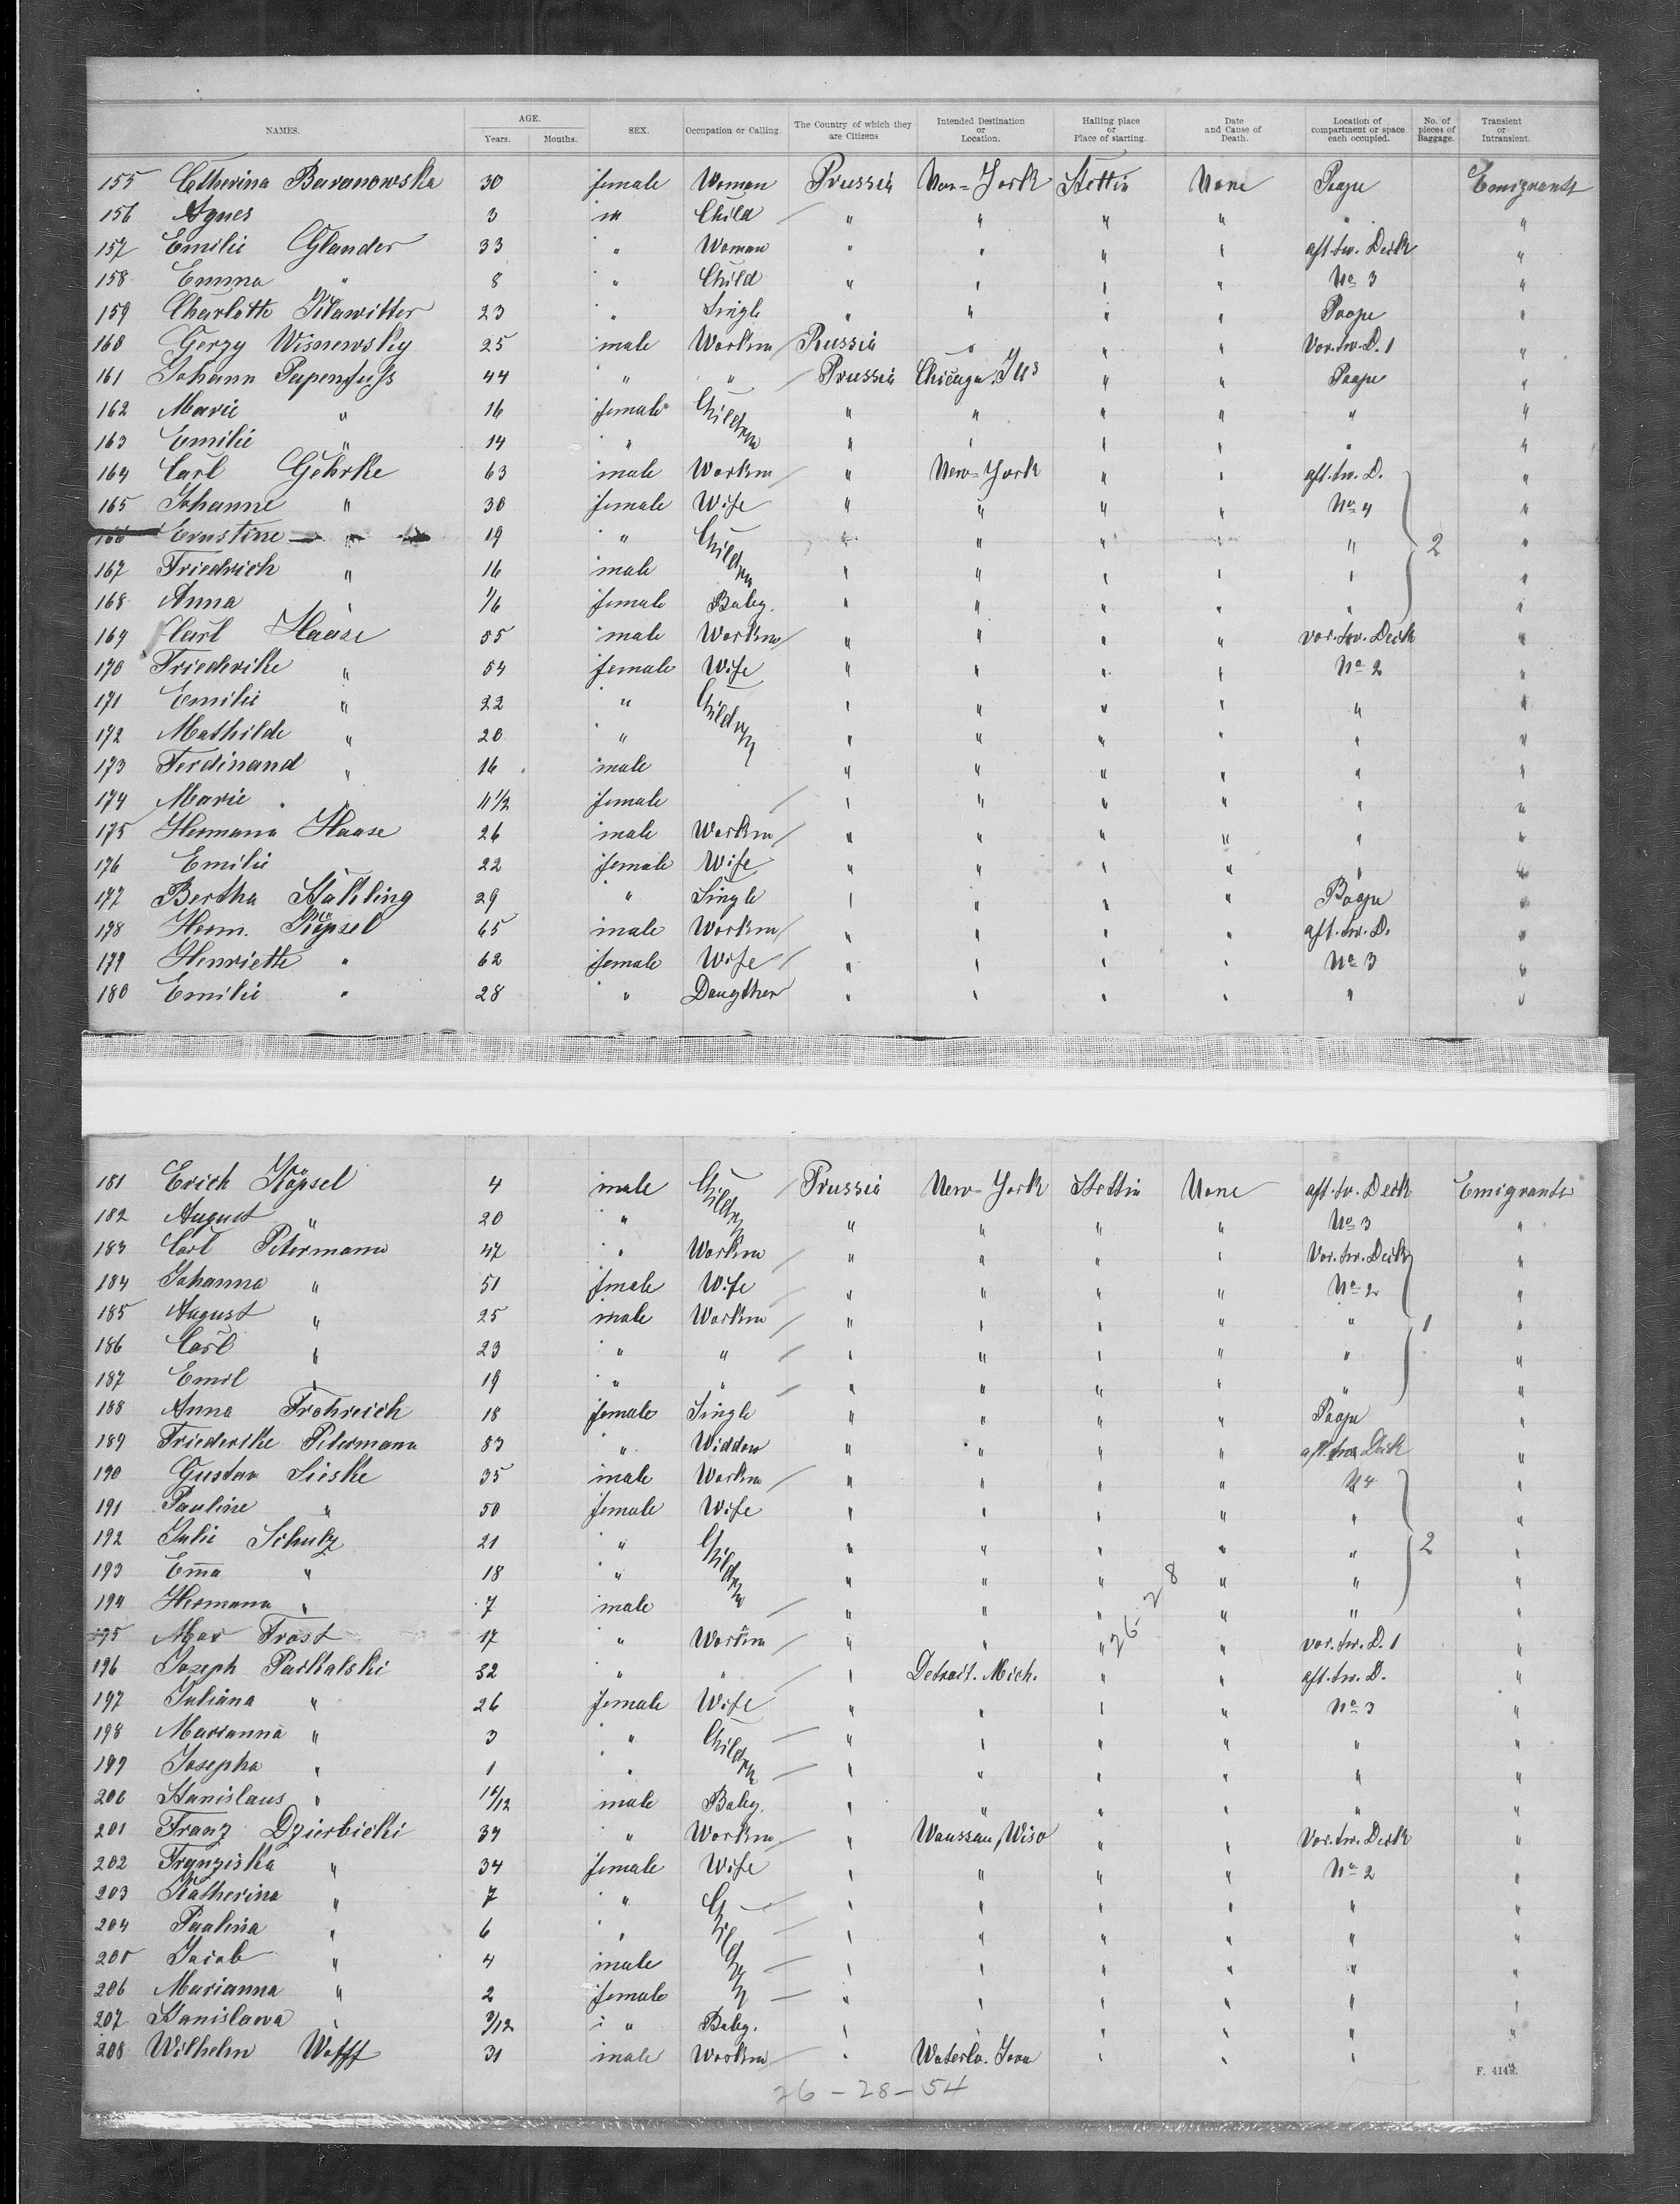 NAMES. AGE. Years. Months. SEX. Occupation or Calling. The Country of which they are Citizens Intended Destination or Location. Hailing place or Place of starting. Date and Cause of Death. Location of compartment or space each occupied. No. of pieces of Baggage. Transient or Intransient.
155 Catherina Baranowska 30 female Woman Prussia New-York Stettin None Poope Emigrants
156 Agnes 3 " Child " " " " " "
157 Emilie Glander 33 " Woman " " " " aft. tw. Deck "
158 Emma " 8 " Child " " " " No 3 "
159 Charlotte Pilawitter 23 " Single " " " " Poope "
160 Gerzy Wisnewsky 25 male Workm Russia " " " Vor. tw. D. 1 "
161 Johann Papenfuss 44 " " Prussia Chicago. Ills " " Poope "
162 Marie " 16 female Children " " " " " "
163 Emilie " 14 " " " " " " "
164 Carl Gehrke 63 male Workm " New-York " " aft. tw. D. "
165 Johanne " 30 female Wife " " " " No 4 "
166 Ernstine " 19 " Children " " " " " 2 "
167 Friedrich " 16 male " " " " " "
168 Anna " 1/6 female Baby. " " " " " "
169 Carl Haase 55 male Workm " " " " vor. tw. Deck "
170 Friederike " 54 female Wife " " " " No 2 "
171 Emilie " 22 " Children " " " " " "
172 Mathilde " 20 " " " " " " "
173 Ferdinand " 16 male " " " " " "
174 Marie " 11 1/2 female " " " " " "
175 Hermann Haase 26 male Workm " " " " " "
176 Emilie 22 female Wife " " " " " "
177 Bertha Stähling 29 " Single " " " " Poope "
178 Herm. Köpsel 65 male Workm " " " " aft. tw. D. "
179 Henriette " 62 female Wife " " " " No 3 "
180 Emilie " 28 " Daugther " " " " " "
181 Erich Köpsel 4 male Children Prussia New-York Stettin None aft. tw. Deck Emigrants
182 August " 20 " " " " " No 3 "
183 Carl Petermann 47 " Workm " " " " Vor. tw. Deck "
184 Johanna " 51 fmale Wife " " " " No 2 "
185 August " 25 male Workm " " " " " 1 "
186 Carl " 23 " " " " " " " "
187 Emil " 19 " " " " " " " "
188 Anna Frohreich 18 female Single " " " " Poope "
189 Friederike Petermann 83 " Widdow " " " " aft. tw. Deck "
190 Gustav Sieske 35 male Workm " " " " N4 "
191 Pauline " 50 female Wife " " " " " "
192 Julie Schulz 21 " Children " " " " " 2 "
193 Em̄a " 18 " " " " " " "
194 Hermann " 7 male " " " " " "
26-28
195 Max Frost 17 " Workm " " " " vor. tw. D. 1 "
196 Joseph Parkalski 32 " " " Detroit. Mich. " " aft. tw. D. "
197 Juliana " 26 female Wife " " " " No 3 "
198 Marianna " 3 " Children " " " " " "
199 Josepha " 1 " " " " " " "
200 Stanislaus " 10/12 male Baby. " " " " " "
201 Franz Dzierbicki 34 " Workm " Waussau, Wisc " " Vor. tw. Deck "
202 Franziska " 34 female Wife " " " " No 2 "
203 Katherina " 7 " Children " " " " " "
204 Paulina " 6 " " " " " " "
205 Jacob " 4 male " " " " " "
206 Marianna " 2 female " " " " " "
207 Stanislawa " 3/12 " Baby. " " " " " "
208 Wilhelm Wolff 31 male Workm " Waterlo. Iowa " " "
F. 414a.
26-28-54